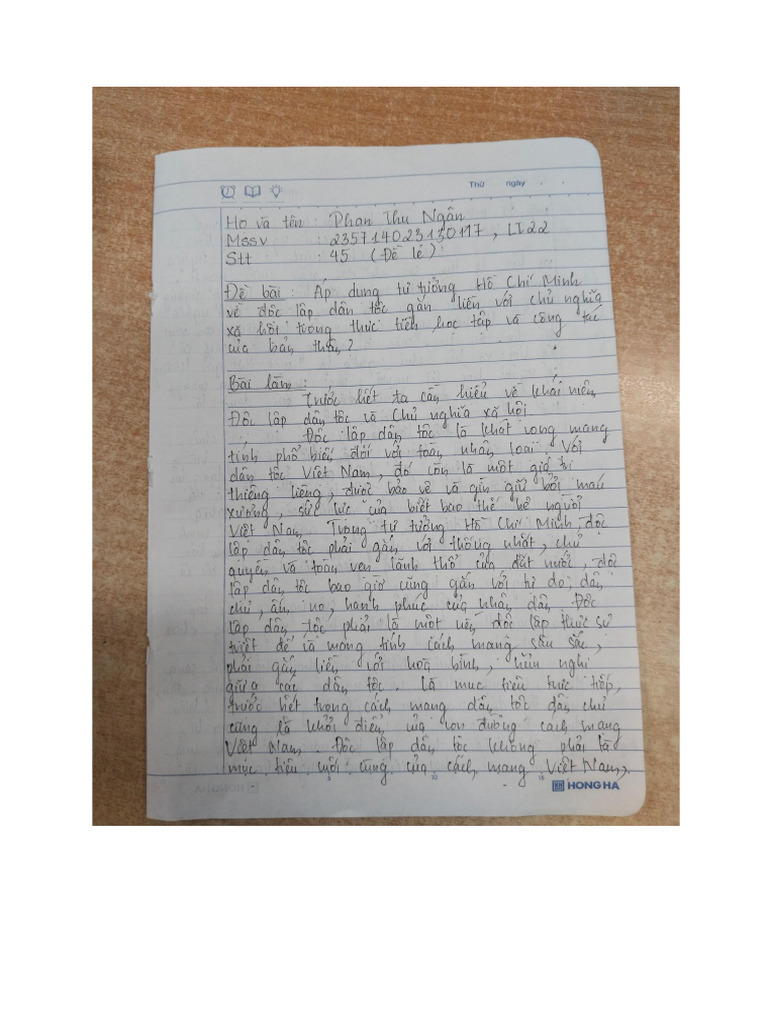 Thứ ngày
Họ và tên : Phan Thu Ngân
Mssv : 235714023130117, LT22
Stt : 45 (Đề lẻ)
Đề bài : Áp dụng tư tưởng Hồ Chí Minh
về độc lập dân tộc gắn liền với chủ nghĩa
xã hội trong thực tiễn học tập và công tác
của bản thân?
Bài làm :
Trước hết ta cần hiểu về khái niệm
Độc lập dân tộc và Chủ nghĩa xã hội
Độc lập dân tộc là khát vọng mang
tính phổ biến đối với toàn nhân loại. Với
dân tộc Việt Nam, đó còn là một giá trị
thiêng liêng, được bảo vệ và gìn giữ bởi máu
xương, sức lực của biết bao thế hệ người
Việt Nam. Trong tư tưởng Hồ Chí Minh, độc
lập dân tộc phải gắn với thống nhất, chủ
quyền và toàn vẹn lãnh thổ của đất nước, độc
lập dân tộc bao giờ cũng gắn với tự do, dân
chủ, ấm no, hạnh phúc của nhân dân. Độc
lập dân tộc phải là một nền độc lập thực sự
triệt để và mang tính cách mạng sâu sắc,
phải gắn liền với hoà bình, hữu nghị
giữa các dân tộc. Là mục tiêu trực tiếp,
trước hết trong cách mạng dân tộc dân chủ
cũng là khởi điểm của con đường cách mạng
Việt Nam. Độc lập dân tộc không phải là
mục tiêu cuối cùng của cách mạng Việt Nam,
HONG HA